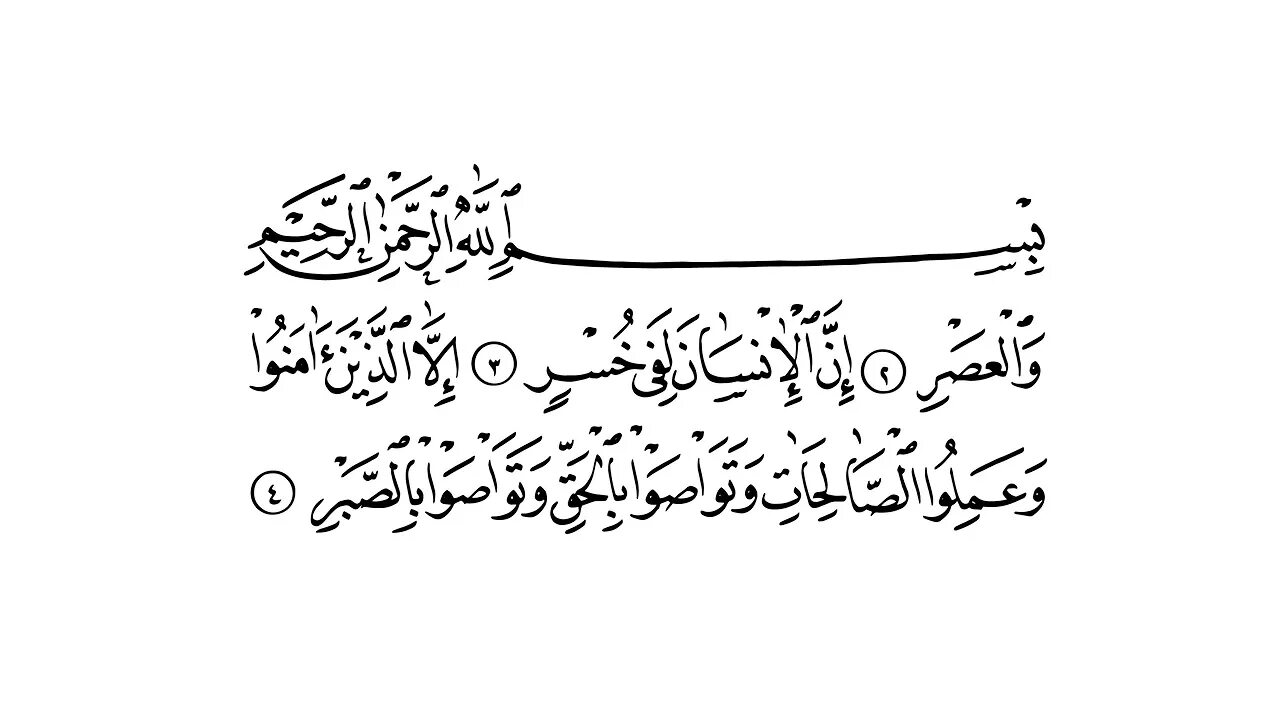 بِسْمِ ٱللَّهِ ٱلرَّحْمَٰنِ ٱلرَّحِيمِ
وَٱلْعَصْرِ ٢ إِنَّ ٱلْإِنْسَانَ لَفِى خُسْرٍ ٣ إِلَّا ٱلَّذِينَ ءَامَنُوا۟
وَعَمِلُوا ٱلصَّالِحَاتِ وَتَوَاصَوْا بِٱلْحَقِّ وَتَوَاصَوْا بِٱلصَّبْرِ ٤